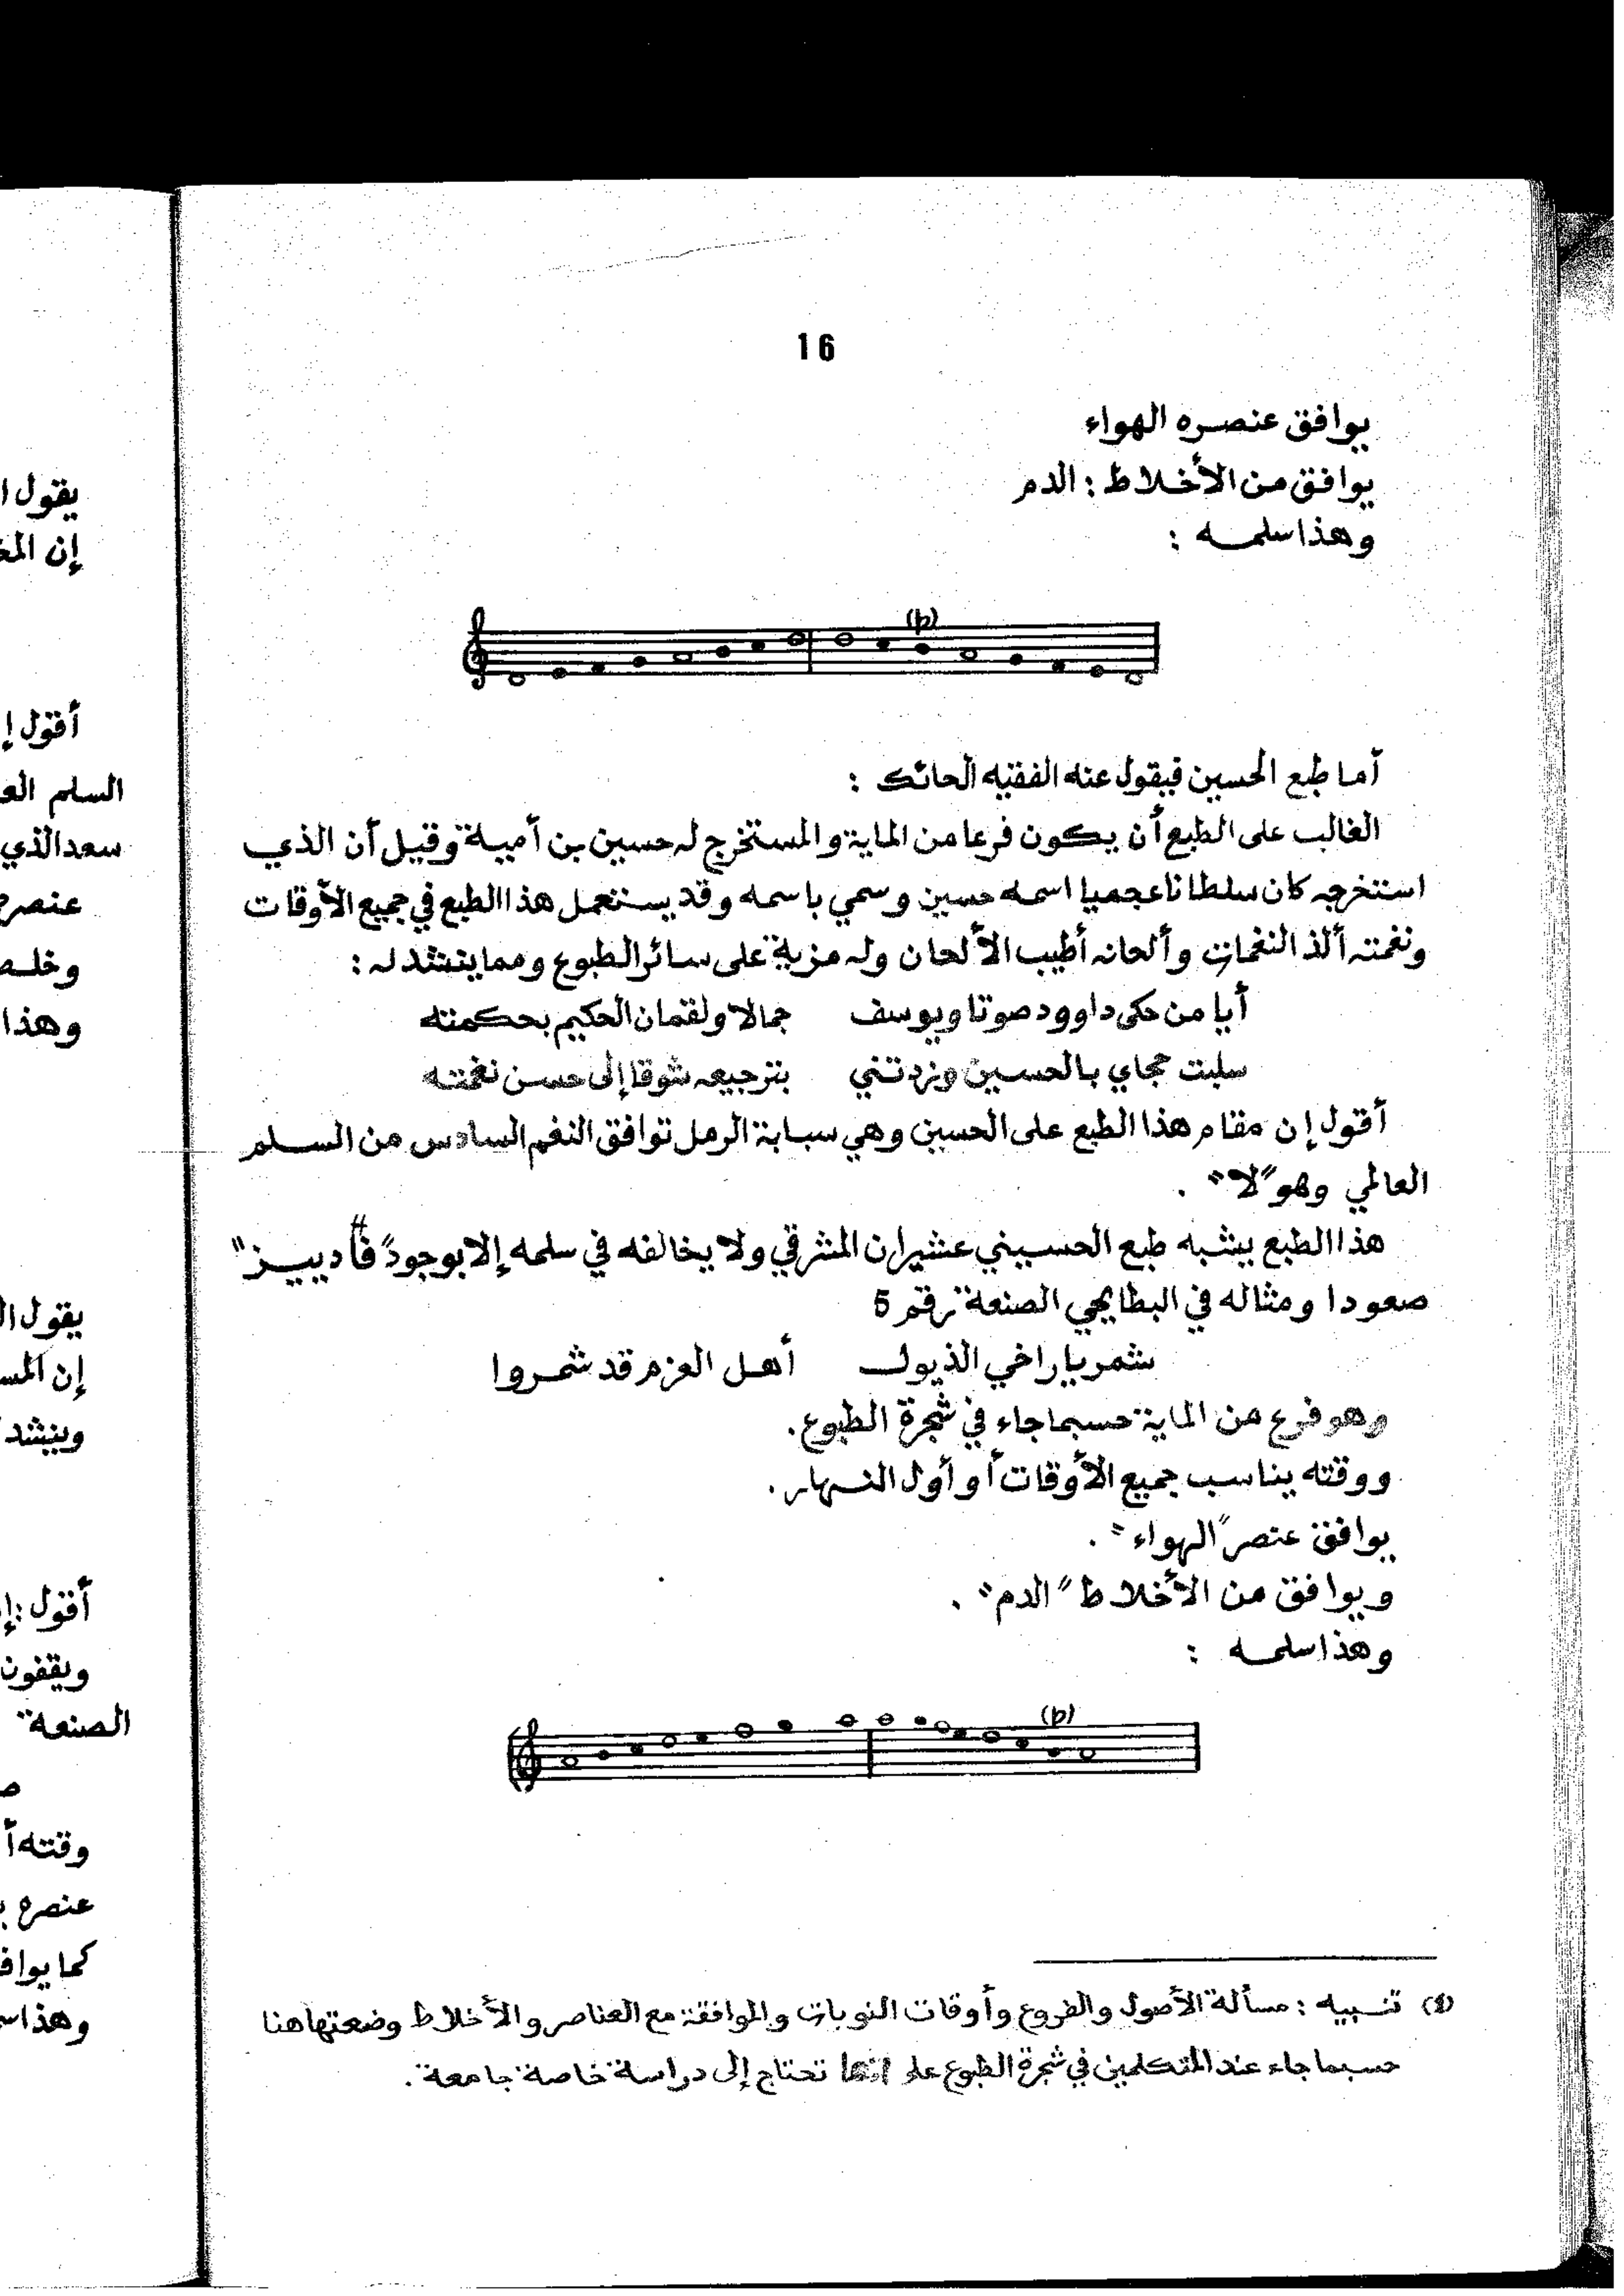 16
يوافق عنصره الهواء
يوافق من الأخلاط : الدم
وهذا سلمه :
(b)
أما طبع الحسين فيقول عنه الفقيه الحائك :
الغالب على الطبع أن يكون فرعا من الماية والمستخرج له حسين بن أمية وقيل أن الذي
استخرجه كان سلطانا عجميا اسمه حسين وسمي باسمه وقد يستعمل هذا الطبع في جميع الأوقات
ونغمته ألذ النغمات وألحانه أطيب الألحان وله مزية على سائر الطبوع ومما ينشد له :
أيا من حكى داوود صوتا ويوسف جمالا ولقمان الحكيم بحكمته
سلبت حجاي بالحسين وزدتني بترجيعه شوقا إلى حسن نغمته
أقول إن مقام هذا الطبع على الحسين وهي سبابة الرمل توافق النغم السادس من السلم
العالمي وهو "لا" .
هذا الطبع يشبه طبع الحسيني عشيران المشرقي ولا يخالفه في سلمه إلا بوجود "فا# دييز"
صعودا ومثاله في البطايحي الصنعة رقم 5
شمر يا راخي الذيول أهل العزم قد شمروا
وهو فرع من الماية حسبما جاء في شجرة الطبوع.
ووقته يناسب جميع الأوقات أو أول النهار .
يوافق عنصر "الهواء" .
ويوافق من الأخلاط "الدم" .
وهذا سلمه :
(b)
(1) تنبيه : مسألة الأصول والفروع وأوقات النوبات والموافقة مع العناصر والأخلاط وضعتها هنا
حسبما جاء عند المتكلمين في شجرة الطبوع على انها تحتاج إلى دراسة خاصة جامعة .
يقول
أقول
السلم
سعد الذي
وهذا
أقول :
ويقفون
الصنعة